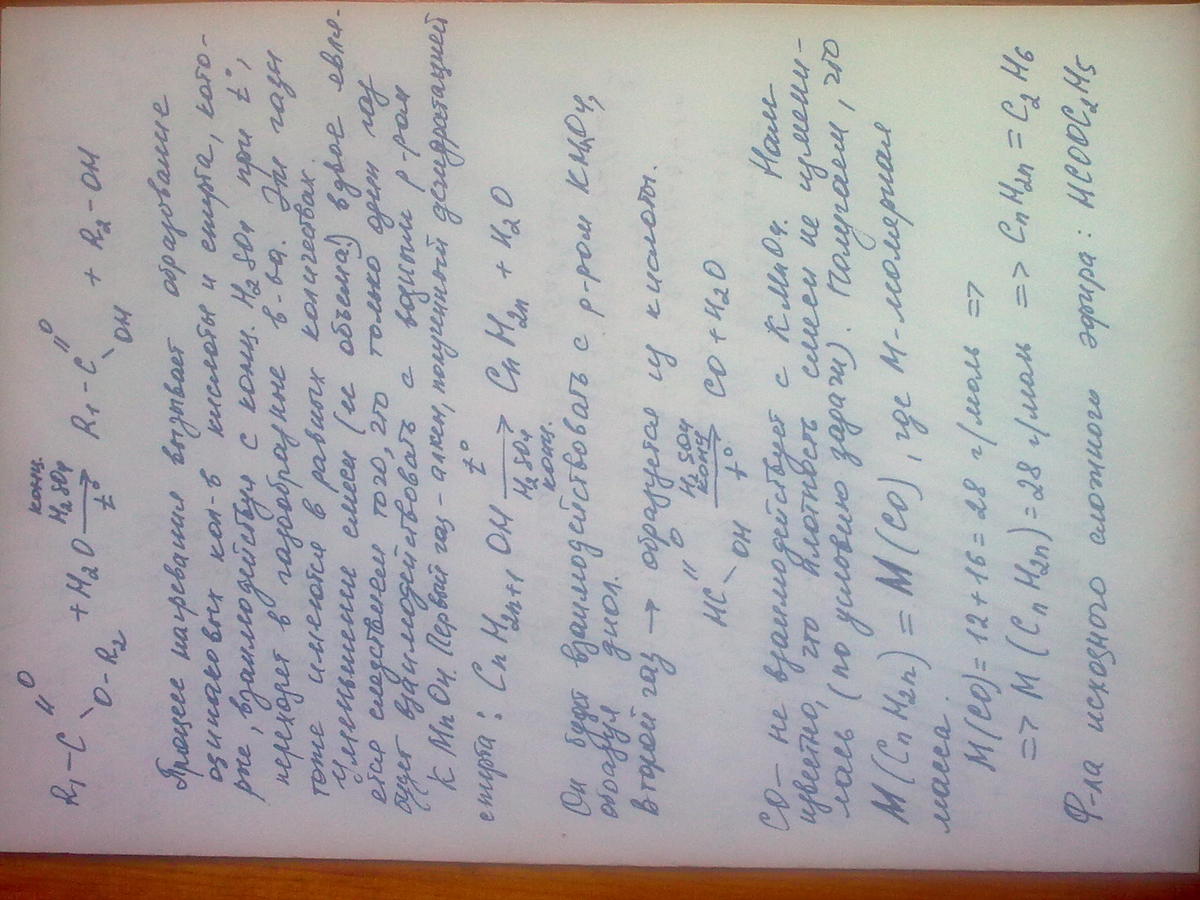 R₁-C
O
O-R₂
+ H₂O
конц.
H₂SO₄
t°
R₁-C
O
OH
+ R₂-OH
Процесс нагревания вызывает образование
одинаковых кол-в кислоты и спирта, кото-
рые, взаимодействуя с конц. H₂SO₄ при t°,
переходят в газообразные в-ва. Эти газы
тоже имеются в равных количествах.
Уменьшение смеси (и объема!) вдвое явля-
ется следствием того, что только один газ
будет взаимодействовать с водным р-ром
KMnO₄. Первый газ - алкен, полученный дегидратацией
спирта: CnH2n+1OH
t°
H₂SO₄
конц.
CnH2n + H₂O
Он будет взаимодействовать с р-ром KMnO₄,
образуя диол.
Второй газ → образуется из кислоты.
HC
O
OH
H₂SO₄
конц
t°
CO + H₂O
CO - не взаимодействует с KMnO₄. Нам
известно, что плотность смеси не измени-
лась (по условию задачи). Получаем, что
M(CnH2n) = M(CO), где M-молярная
масса.
M(CO) = 12+16 = 28 г/моль =>
=> M(CnH2n) = 28 г/моль => CnH2n = C₂H₆
Ф-ла исходного сложного эфира: HCOOC₂H₅